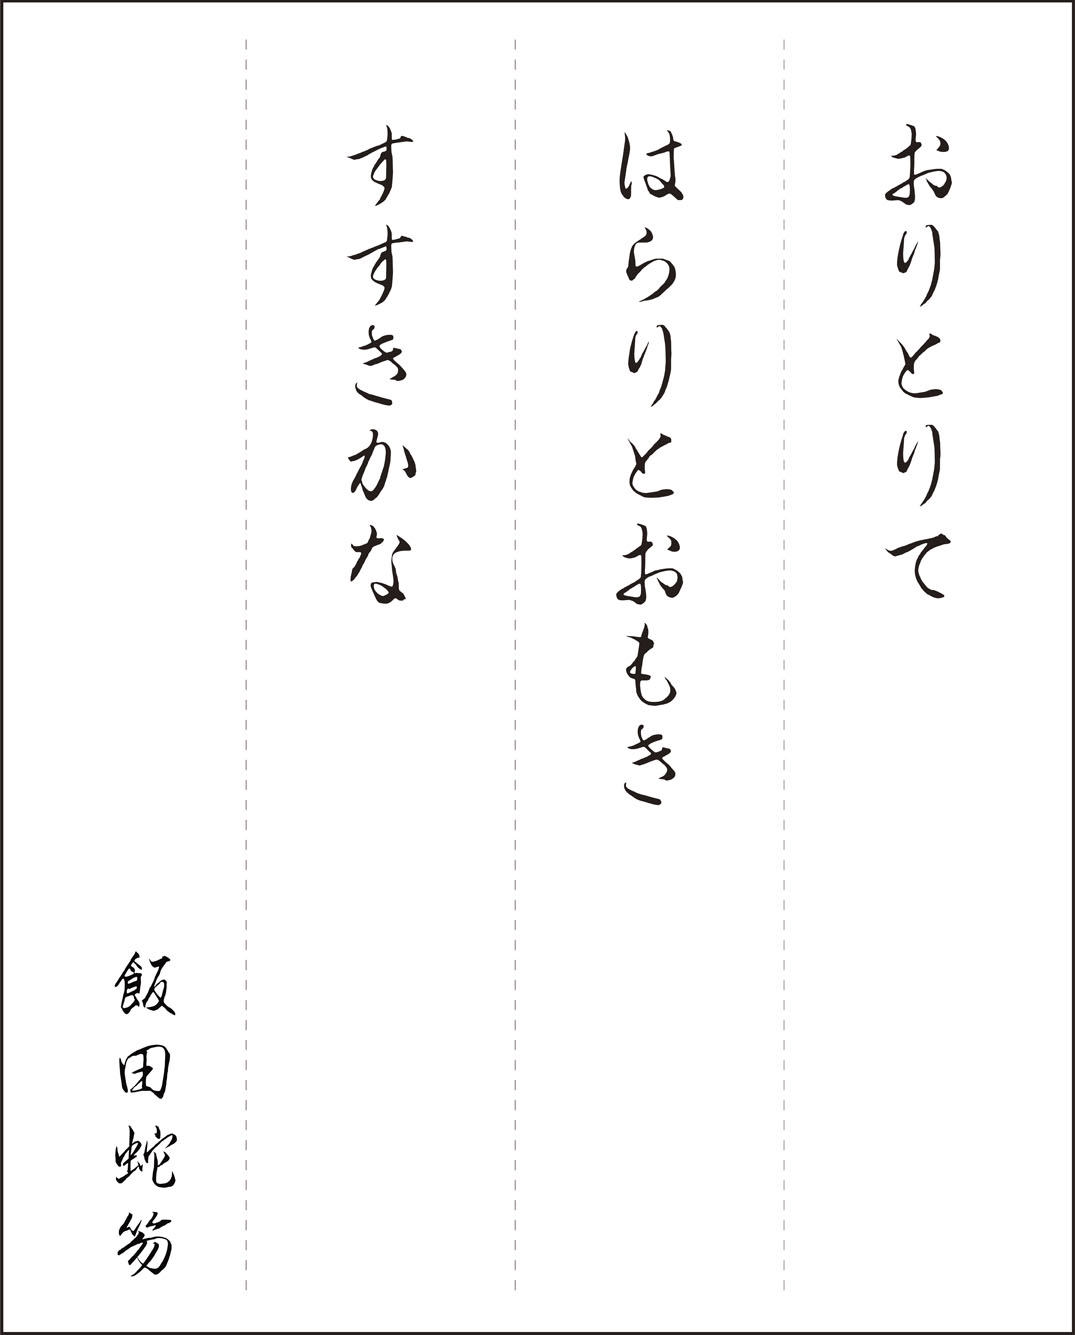 おりとりて
はらりとおもき
すすきかな
飯田蛇笏